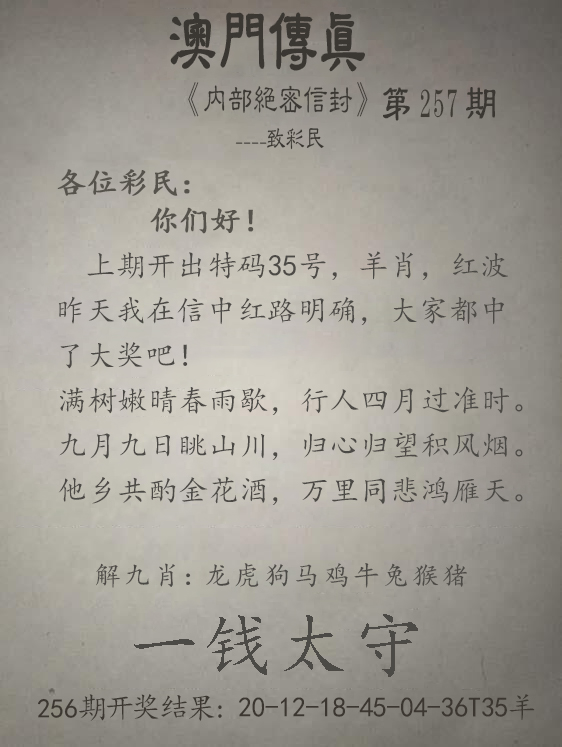 澳門傳真
《内部絕密信封》第257期
----致彩民
各位彩民：
你们好！
上期开出特码35号，羊肖，红波
昨天我在信中红路明确，大家都中
了大奖吧！
满树嫩晴春雨歇，行人四月过准时。
九月九日眺山川，归心归望积风烟。
他乡共酌金花酒，万里同悲鸿雁天。
解九肖：龙虎狗马鸡牛兔猴猪
一钱太守
256期开奖结果：20-12-18-45-04-36T35羊